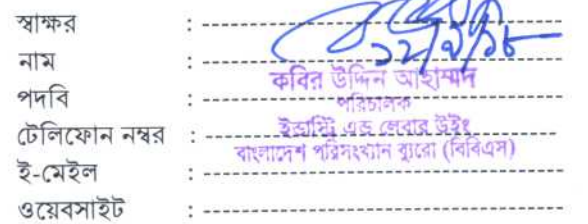 স্বাক্ষর : ----------
১২/৯/১৮
নাম : ----------
কবির উদ্দিন আহাম্মদ
পদবি : ----------
পরিচালক
টেলিফোন নম্বর : ----------
ইন্ডাস্ট্রি এন্ড লেবার উইং
বাংলাদেশ পরিসংখ্যান ব্যুরো (বিবিএস)
ই-মেইল : ----------
ওয়েবসাইট : ----------